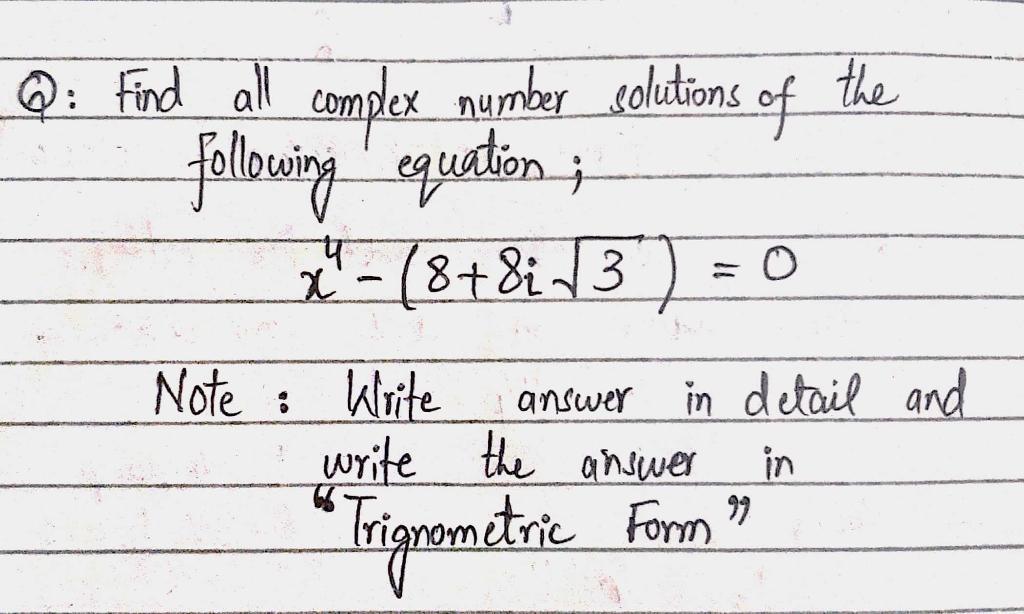 Q: Find all complex number solutions of the
following equation ;
x⁴ - (8 + 8i √3 ) = 0
Note : Write answer in detail and
write the answer in
“Trignometric Form”